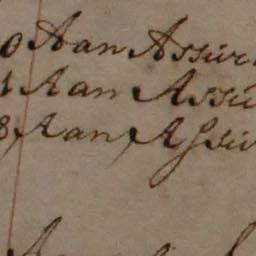 0 Aan Assur
1 Aan Assu
8 Aan Assu